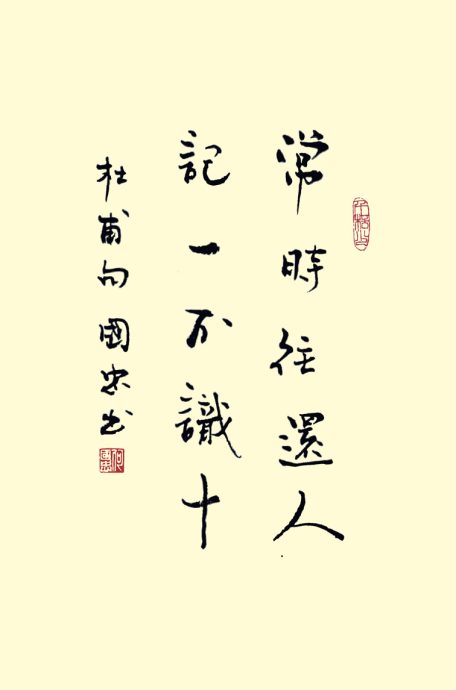 常時往還人
記一不識十
杜甫句國忠书